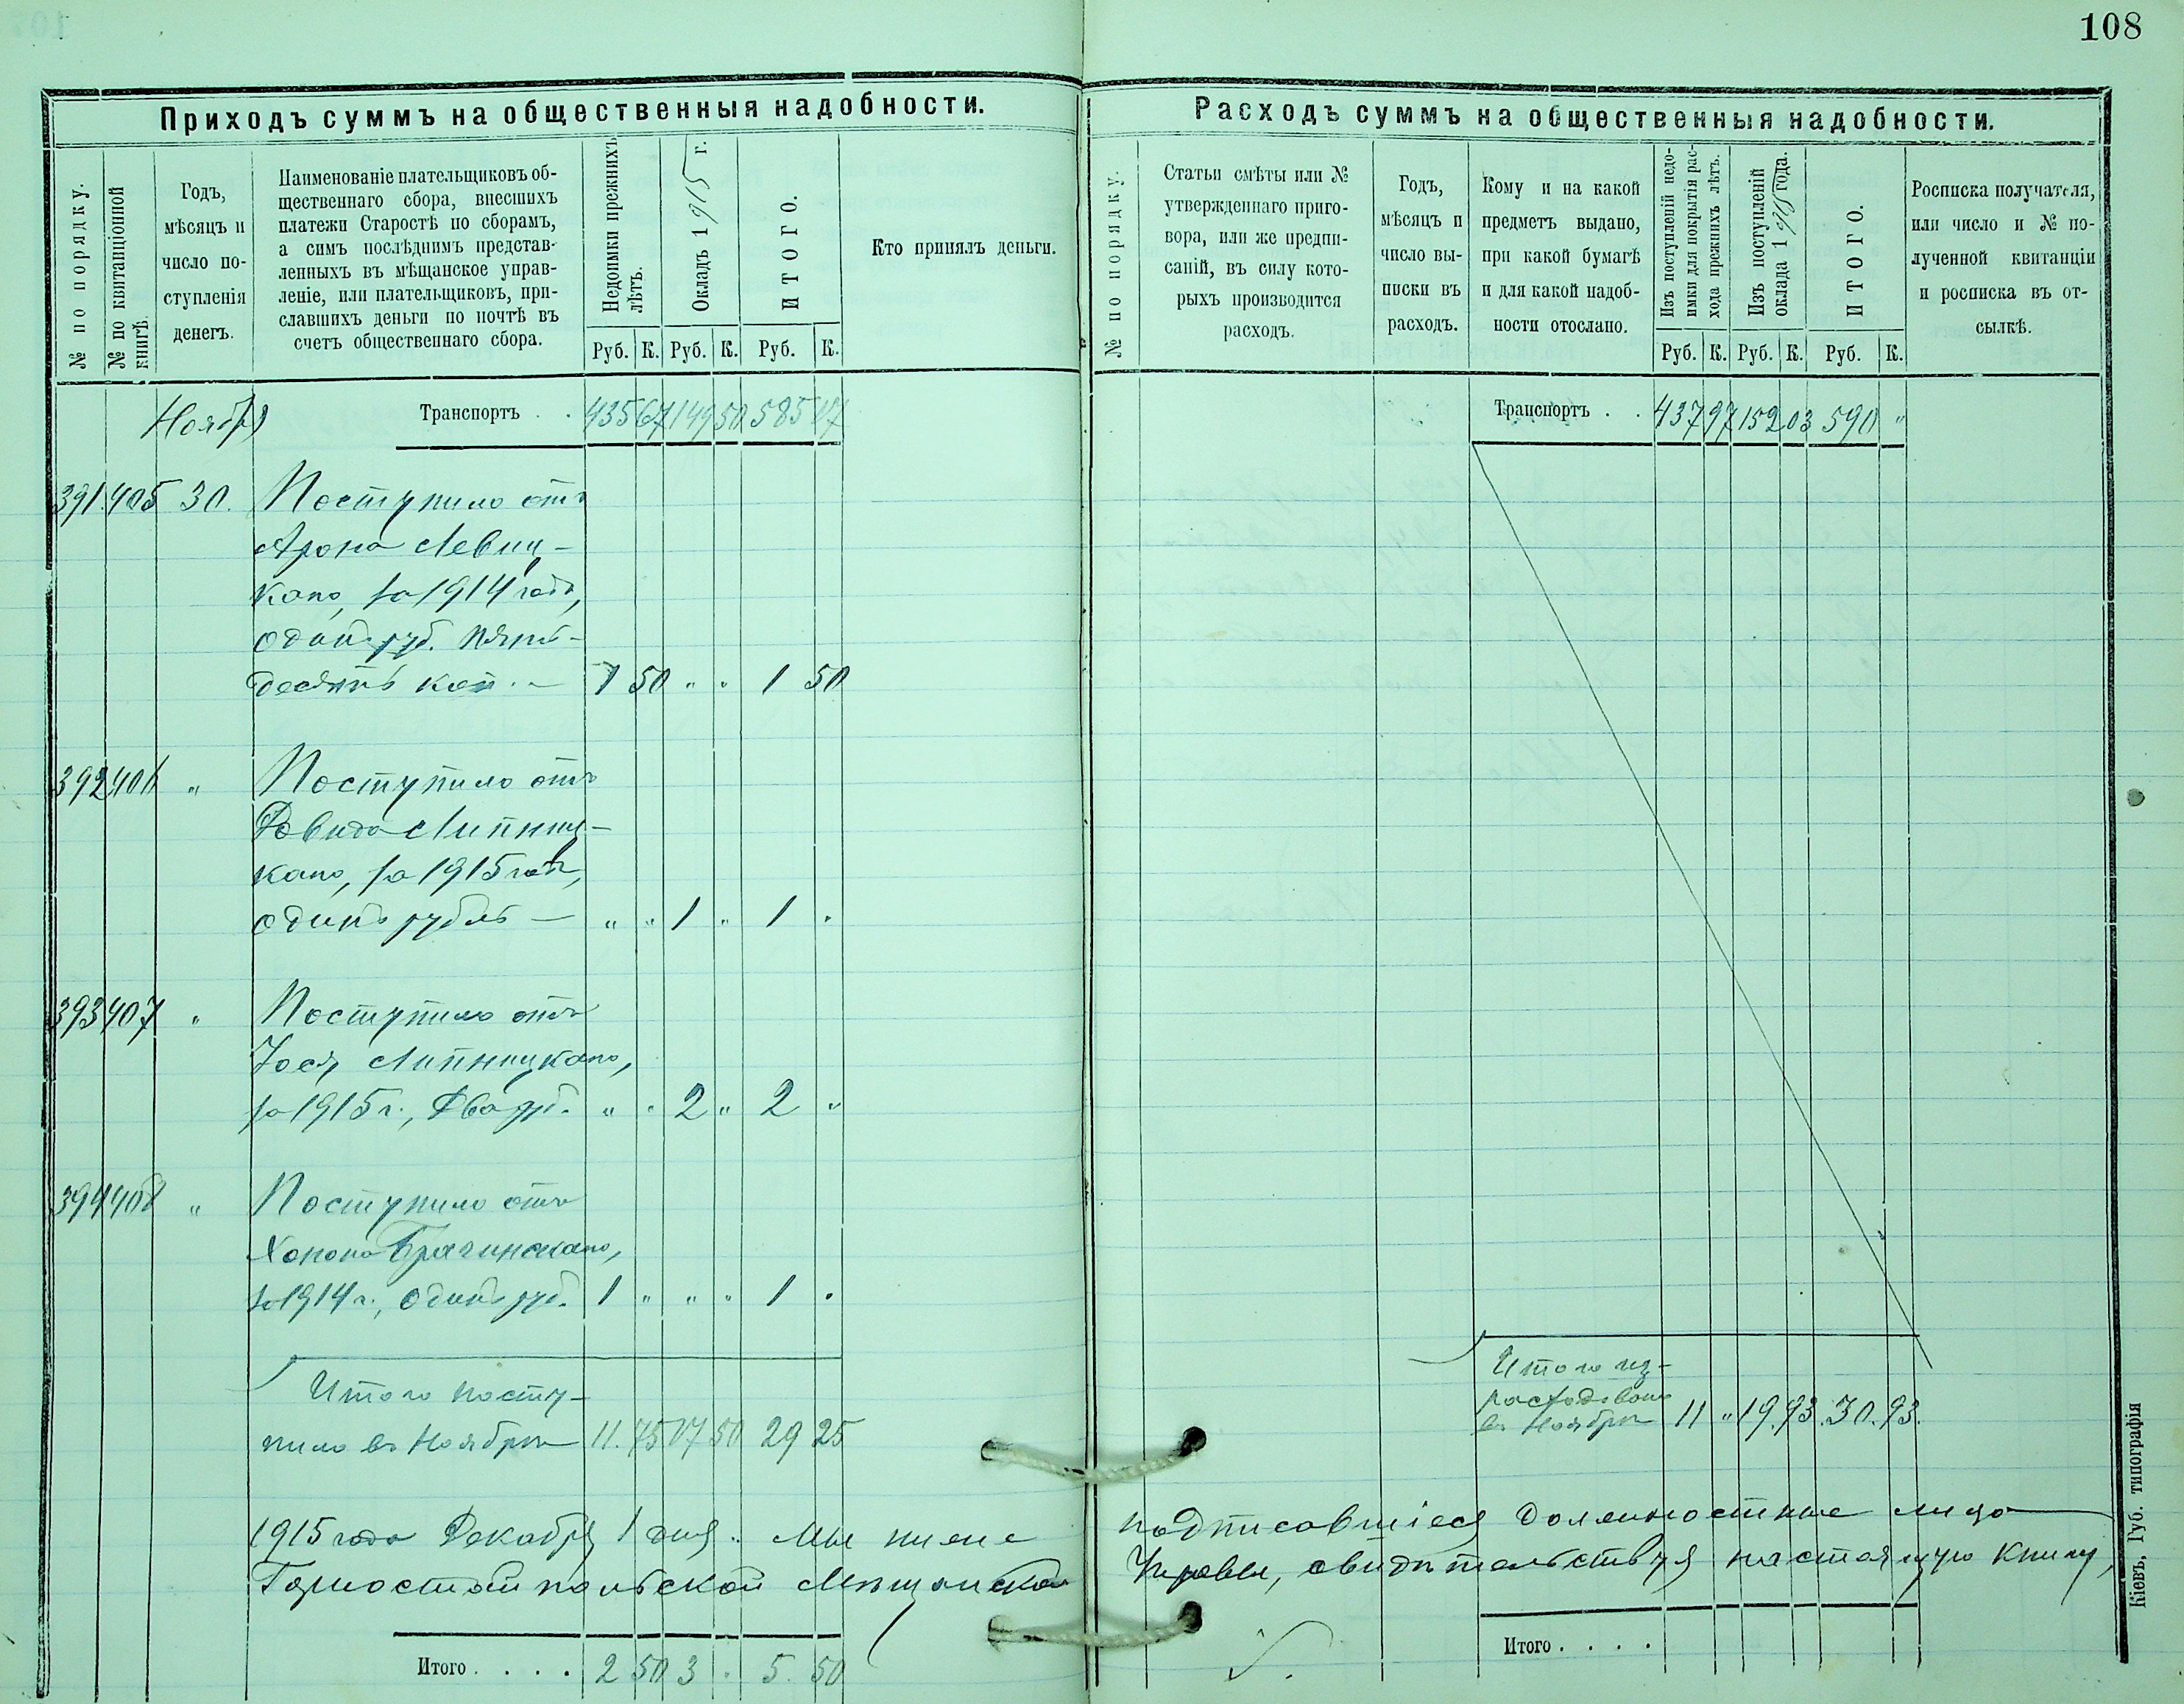 108
Приходъ суммъ на общественныя надобности.
№ по порядку.
№ по квитанціонной
книгѣ.
Годъ,
мѣсяцъ и
число по-
ступленія
денегъ.
Наименованіе плательщиковъ об-
щественнаго сбора, внесшихъ
платежи Старостѣ по сборамъ,
а симъ послѣднимъ представ-
ленныхъ въ мѣщанское управ-
леніе, или плательщиковъ, при-
славшихъ деньги по почтѣ въ
счетъ общественнаго сбора.
Недоимки прежнихъ
лѣтъ.
Окладъ 1915 г.
ИТОГО.
Руб. К. Руб. К. Руб. К.
Кто принялъ деньги.
Ноября Транспортъ . . 435 67 149 50 585 17
391. 405 30. Поступило отъ
Арона Левиц-
каго, за 1914 годъ,
одинъ руб. пять-
десятъ коп. — 1 50 " " 1 50
392 406 " Поступило отъ
Давида Липниц-
каго, за 1915 годъ,
одинъ рубль — " " 1 " 1 "
393 407 " Поступило отъ
Іося Липницкаго,
за 1915 г., два руб. " " 2 " 2 "
394 408 " Поступило отъ
Хонона Брагинскаго,
за 1914 г., одинъ руб. 1 " " " 1 "
Итого посту-
пило въ Ноябрѣ 11. 75 17 50 29 25
1915 года Декабря 1 дня. Мы ниже
Горностайпольской Мѣщанской
Итого . . . . 2 50 3 " 5. 50
Расходъ суммъ на общественныя надобности.
№ по порядку.
Статьи смѣты или №
утвержденнаго приго-
вора, или же предпи-
саній, въ силу кото-
рыхъ производится
расходъ.
Годъ,
мѣсяцъ и
число вы-
писки въ
расходъ.
Кому и на какой
предметъ выдано,
при какой бумагѣ
и для какой надоб-
ности отослано.
Изъ поступленій недо-
имки для покрытія рас-
хода прежнихъ лѣтъ.
Изъ поступленій
оклада 1915 года.
ИТОГО.
Руб. К. Руб. К. Руб. К.
Росписка получателя,
или число и № по-
лученной квитанціи
и росписка въ от-
сылкѣ.
Транспортъ . . 437 97 152 03 590 "
Итого из-
расходовано
въ Ноябрѣ 11 " 19. 93. 30. 93.
подписавшіеся должностные лица
Управы, свидѣтельствуя настоящую книгу,
Итого . . . .
Кіевъ, Губ. типографія